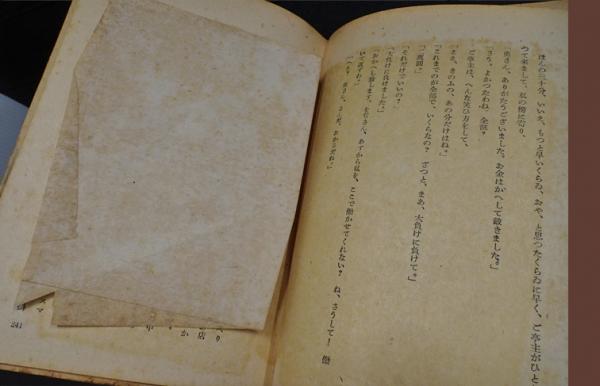 ほんの二十分、いいえ、もつと早いくらゐ、おや、と思つたくらゐに早く、ご亭主がひと
つて来まして、私の傍に寄り、
「奥さん、ありがたうございました。お金はかへして戴きました。」
「さう。よかつたわね。全部？」
ご亭主は、へんな笑ひ方をして、
「ええ、きのふの、あの分だけはね。」
「これまでのが全部で、いくらなの？　ざつと、まあ、大負けに負けて。」
「二萬圓。」
「それだけでいいの？」
「大負けに負けました。」
「おかへし致します。をぢさん、あすから私を、ここで働かせてくれない？　ね、さうして！　働
いて返すわ。」
241